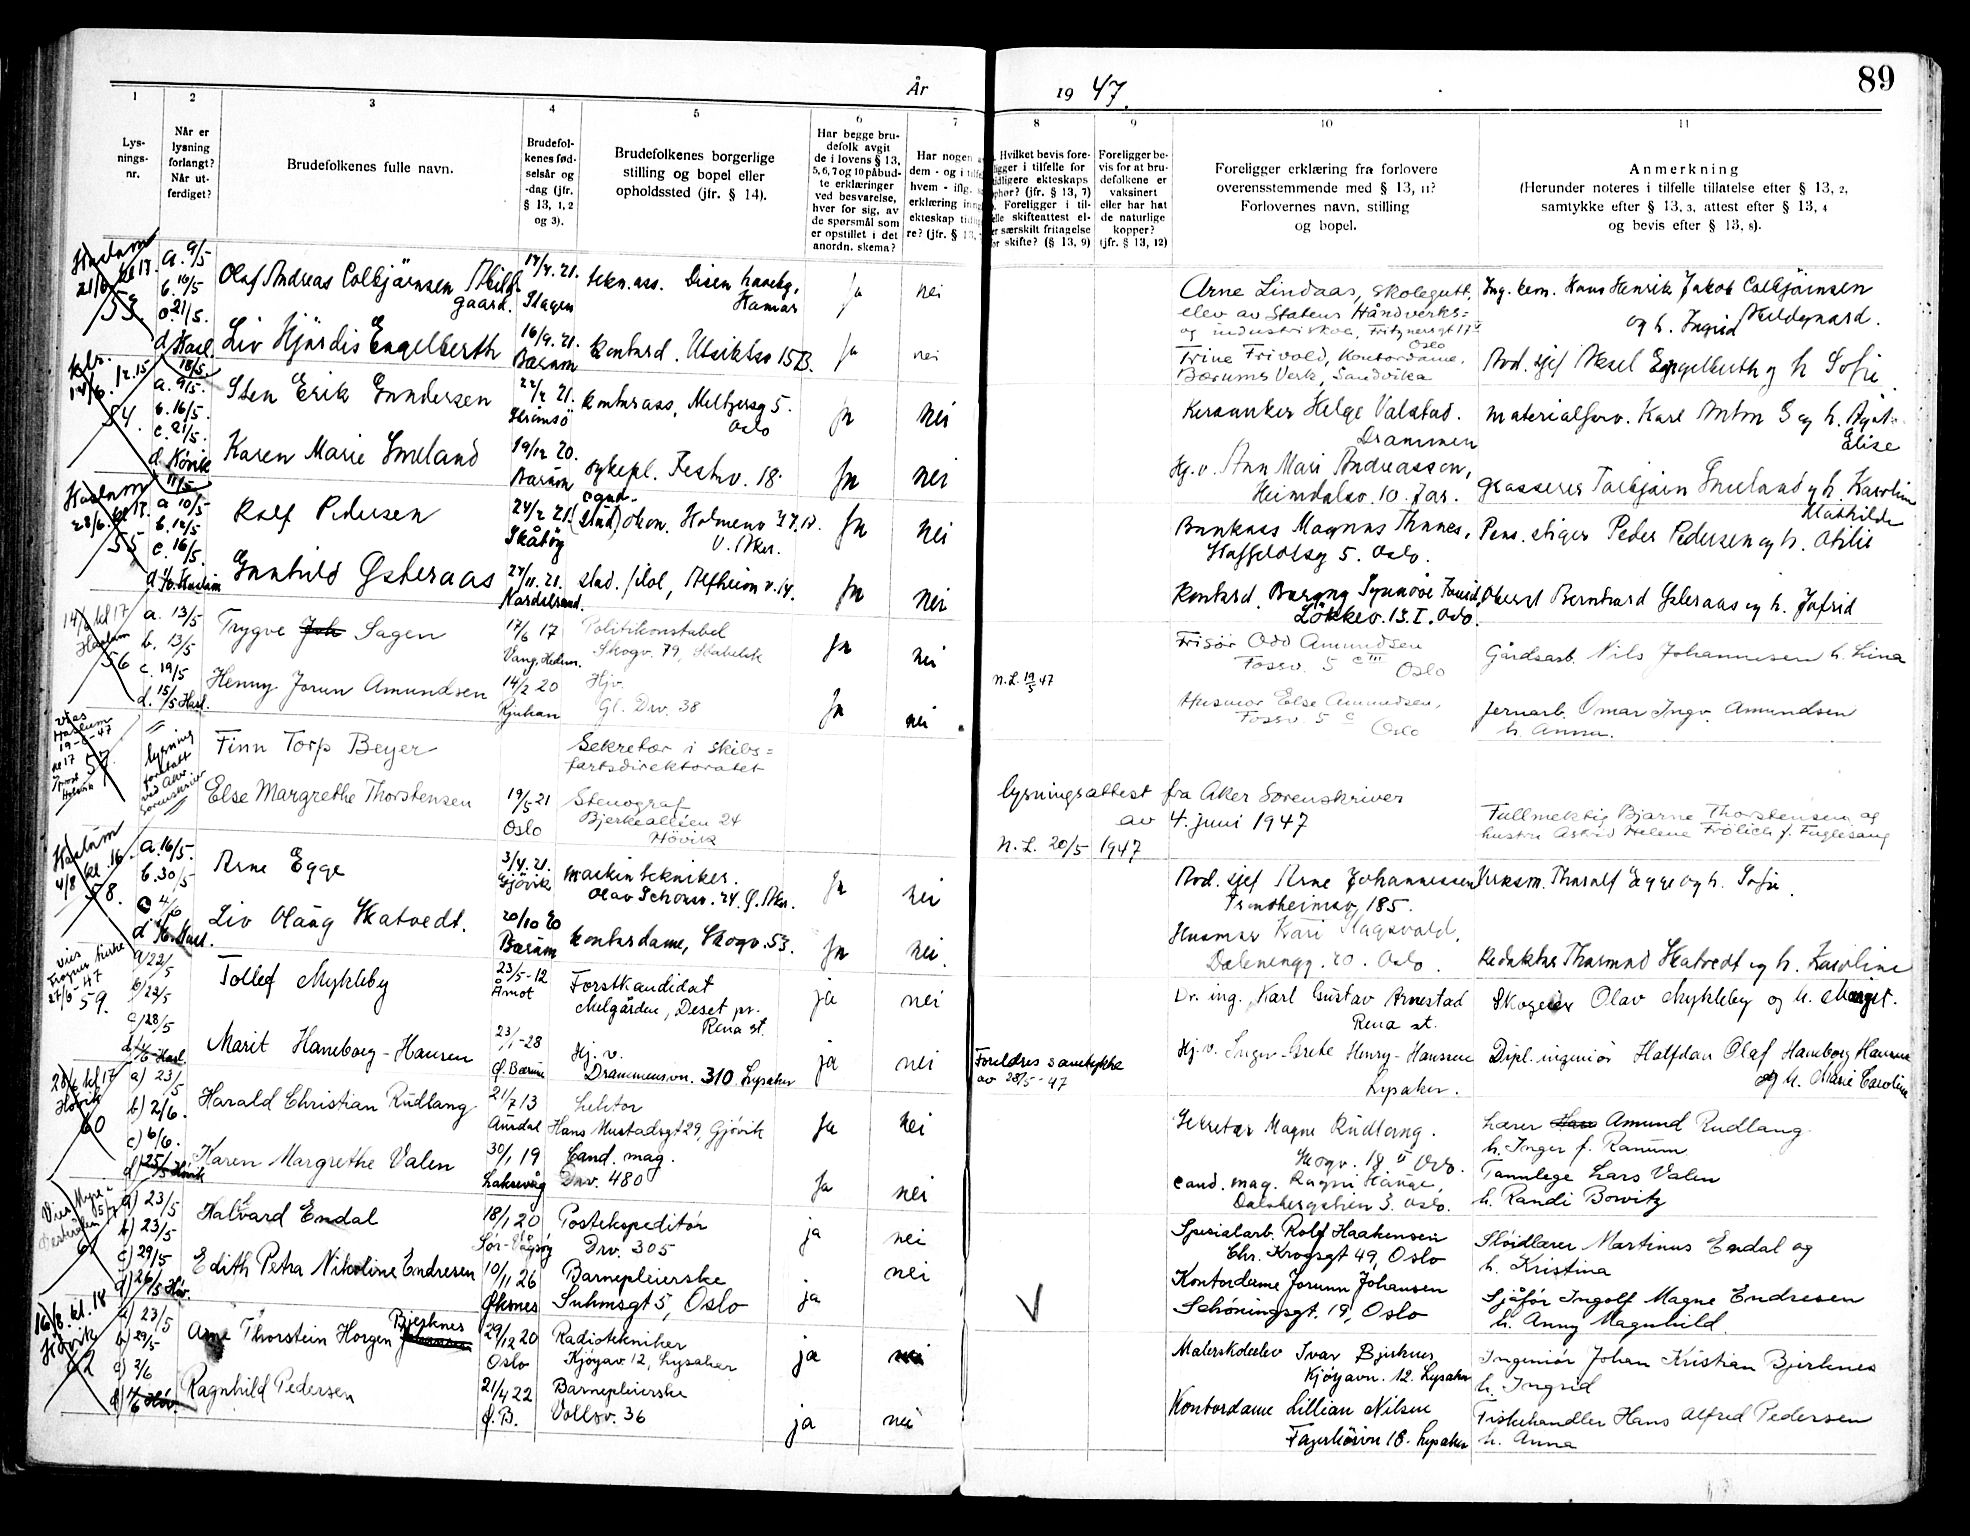 89
År 1947.
1 2 3 4 5 6 7 8 9 10 11
Lys-
nings-
nr.
Når er
lysning
forlangt?
Når ut-
ferdiget?
Brudefolkenes fulle navn.
Brudefol-
kenes fød-
selsår og
-dag (jfr.
§ 13, 1, 2
og 3).
Brudefolkenes borgerlige
stilling og bopel eller
opholdssted (jfr. § 14).
Har begge bru-
defolk avgit
de i lovens § 13,
5, 6, 7 og 10 påbud-
te erklæringer
ved besvarelse,
hver for sig, av
de spørsmål som
er opstillet i det
anordn. skema?
Har nogen
dem - og i
hvem - iflg.
erklæring
ekteskap
re? (jfr. § 13,
Hvilket bevis fore-
ligger i tilfelle for
ekteskaps
ophør? (jfr. § 13, 7)
Foreligger i til-
felle skifteattest el-
særskilt fritagelse
for skifte? (§ 13, 9)
Foreligger be-
vis for at bru-
defolkene er
vaksinert
eller har hat
de naturlige
kopper?
(jfr. § 13, 12)
Foreligger erklæring fra forlovere
overensstemmende med § 13, 11?
Forlovernes navn, stilling
og bopel.
Anmerkning
(Herunder noteres i tilfelle tillatelse efter § 13, 2,
samtykke efter § 13, 3, attest efter § 13, 4
og bevis efter § 13, 8).
Haslum
21/6 kl 17.
53.
a. 9/5
b. 10/5
c. 21/5.
d. Hasl.
Olaf Andreas Colbjørnsen
gaard.
17/4. 21.
Stagen
tekn. ass. Disen haveby,
Hamar
ja nei
Arne Lindaas, skolegutt,
elev av Statens Håndverks=
og industriskole, Fritznersgt 17
Oslo
Ing. kem. Hans Henrik Jakob Colbjörnsen
og h. Ingrid
Liv Hjördis Engelberth
16/9. 21.
Bærum
kontord. Utsiktsv 15B.
ja nei
Trine Frivold, Kontordame,
Bærums Verk, Sandvika
Avd. sjef Aksel Engelberth og h Sofie
54.
18/5.
a. 9/5.
b. 16/5.
c. 21/5.
d. Høvik
Sten Erik Gundersen
22/2 21.
Tromsö
kontorass, Meltzersg 5.
Oslo
ja nei
Helge Valstad.
Drammen
Materialforv. Karl Anton G og h.
Elise
Karen Marie Smeland
19/12 20.
Bærum
sykepl. Festn. v. 18.
ja nei
Hj. v. Ann Mari Andreassen,
Heimdalsv. 10. Jar.
grosserer Torbjørn Smeland og h. Karoline
Mathilde
Haslum
28/6. kl 17.
55
11/5
a 10/5
b. 12/5
c. 16/5.
d. Haslum
Rolf Pedersen
24/2 21.
Skåtöy
cand.
(stud) økon. Holmenv 77.
V. Aker.
ja nei
Bankass Magnus Thunes,
Haffeldtsg 5. Oslo.
Pens. stiger Peder Pedersen og h. Otilie
Gunhild Østeraas
27/11. 21.
Nordstrand.
stud. filol, Alfheim v. 14.
ja nei
Kontord.
Løkkev. 13. I. Oslo.
Oberst Bernhard Østeraas og h. Jofrid
14/6 kl 17
Haslum
56
a. 13/5
b. 13/5
c. 19/5
d. 15/5 Hasl.
Trygve Joh Sagen
17/6 17
Vang, Hedm.
Politikonstabel
Skogv. 79, Stabekk
ja nei
Frisør Odd Amundsen
Fossv. 5 c III Oslo
Gårdsarb. Nils Johannesen h. Lina
Henny Jorun Amundsen
14/2 20
Rjukan
Hjv.
Gl. Drv. 38
ja nei.
N.L. 19/5 47
Husmor Else Amundsen,
Fossv. 5 c Oslo
Jernarb. Omar Ingv. Amundsen
h. Anna.
vies
Haslum
19-6-47
kl 17
57.
lysning
foretatt
ved Aker
Sorenskriver
Finn Torp Beyer
Sekretær i skibs=
fartsdirektoratet
Else Margrethe Thorstensen
19/5 21
Oslo
Stenograf
Bjerkealléen 24
Hövik
lysningsattest fra Aker Sorenskriver
av 4. juni 1947
N.L. 20/5 1947
Fullmektig Bjarne Thorstensen og
hustru Astrid Helene Frölich f. Fuglesang
Haslum
4/8 kl. 16.
58.
a. 16/5.
b. 30/5
c 4/6
d Hasl.
Arne Egge
3/4. 21.
Gjövik
Maskintekniker.
Olav Schousv. 24. Ø. Aker.
ja nei
Avd. sjef Arne Johannessen
Trondheimsv 185.
Verksm. Thoralf Egge og h. Sofie.
Liv Olaug Skatvedt.
20/10 20
Bærum
Kontordame, Skogv. 53.
ja nei.
Husmor Kari Hagsvold,
Dælenengg. 20. Oslo.
Redaktør Thormod Skatvedt og h. Karoline
vies
Frogner kirke
27/6-47
59.
a) 22/5
b) 22/5
c) 28/5
d) Hasl.
Tollef Mykleby
23/5-12
Åmot
Forstkandidat
Melgården, Deset pr.
Rena st.
ja nei
Dr. ing. Karl Gustav Arnestad
Rena st.
Skogeier Olav Mykleby og h. Marget.
Marit Haneborg-Hansen
23/1-28
Ø. Bærum
Hj. v.
Drammensvn. 310 Lysaker
ja nei
Foreldres samtykke
av 28/5-47
Hj. v. Inger-Grete Henry-Hanssen
Lysaker.
Dipl. ingeniör Halfdan Olaf Haneborg Hansen
og h. Marie Caroline
28/6 kl 17
Høvik
60
a) 23/5
b) 2/6.
c) 6/6.
d) 25/5 Høvik
Harald Christian Rudlang
21/7 13
Aurdal
Lektor
Hans Mustadsgt 29, Gjövik
ja nei
Sekretær Magne Rudlang.
Skogv. 18 II Oslo.
Lærer Hans Amund Rudlang
h. Inger f. Ranum
Karen Margrethe Valen
30/1 19
Laksevåg
Cand. mag.
Drv. 480
ja nei
cand. mag. Ragni Hauge,
Dalsbergstien 3. Oslo.
Tannlege Lars Valen
h. Randi Bowitz
61
a) 23/5
b) 23/5
c) 29/5
d) 26/5 Høv.
Halvard Endal
18/1 20
Sør-Vågsøy
Postekspeditör
Drv. 305
ja nei
Spesialarb. Rolf Haakensen
Chr. Krogsgt 49, Oslo
Sløidlærer Martinus Endal og
h. Kristina
Edith Petra Nikoline Endresen
10/11 26
Øksnes
Barnepleierske
Suhmsgt 5, Oslo
ja nei
Kontordame Jorunn Johansen
Schöningsgt. 19, Oslo
Sjåfør Ingolf Magne Endresen
h. Anny Magnhild
16/8. kl. 18
Høvik
62
a) 23/5
b) 29/5
c) 2/6
d) Høv.
Arne Thorstein Horgen Bjerknes
29/12 20
Oslo
Radiotekniker
Kjøyav 12, Lysaker
ja nei
Malerskoleelev Ivar Bjerknes
Kjøyavn. 12. Lysaker
Ingeniör Johan Kristian Bjerknes
h. Ingrid
Ragnhild Pedersen
21/4 22
Ø. B.
Barnepleierske
Vollsv. 36
ja nei
Kontordame Lillian Nilsen
Fagerhöivn 18. Lysaker
Fiskehandler Hans Alfred Pedersen
h. Anna